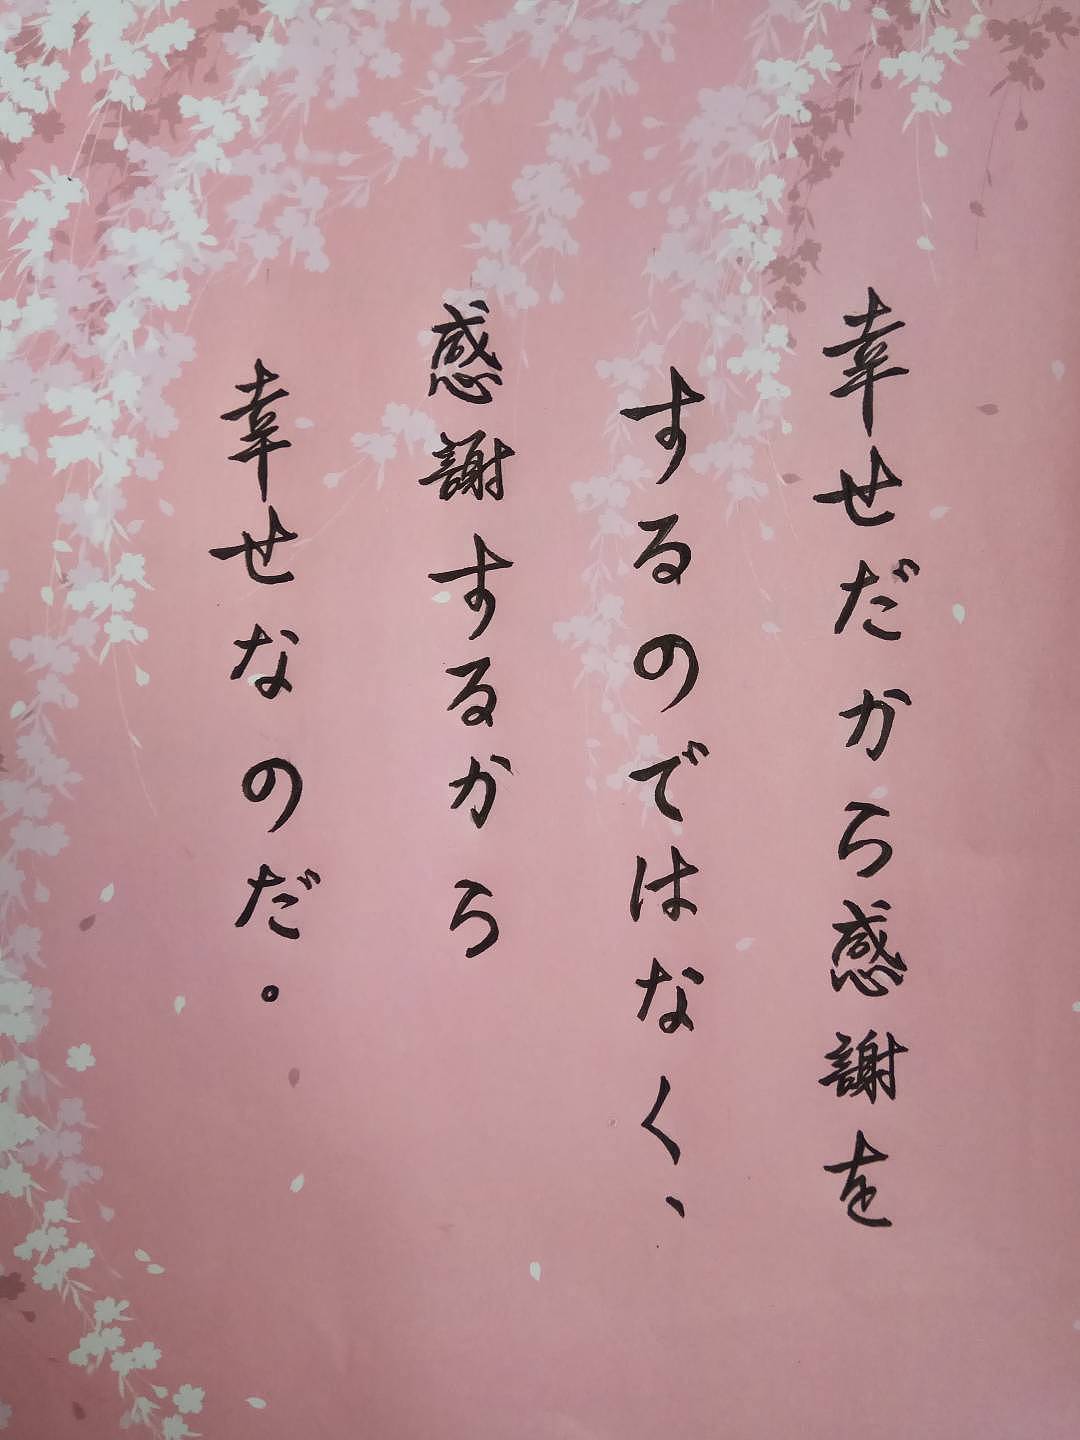 幸せだから感謝を
するのではなく、
感謝するから
幸せなのだ。